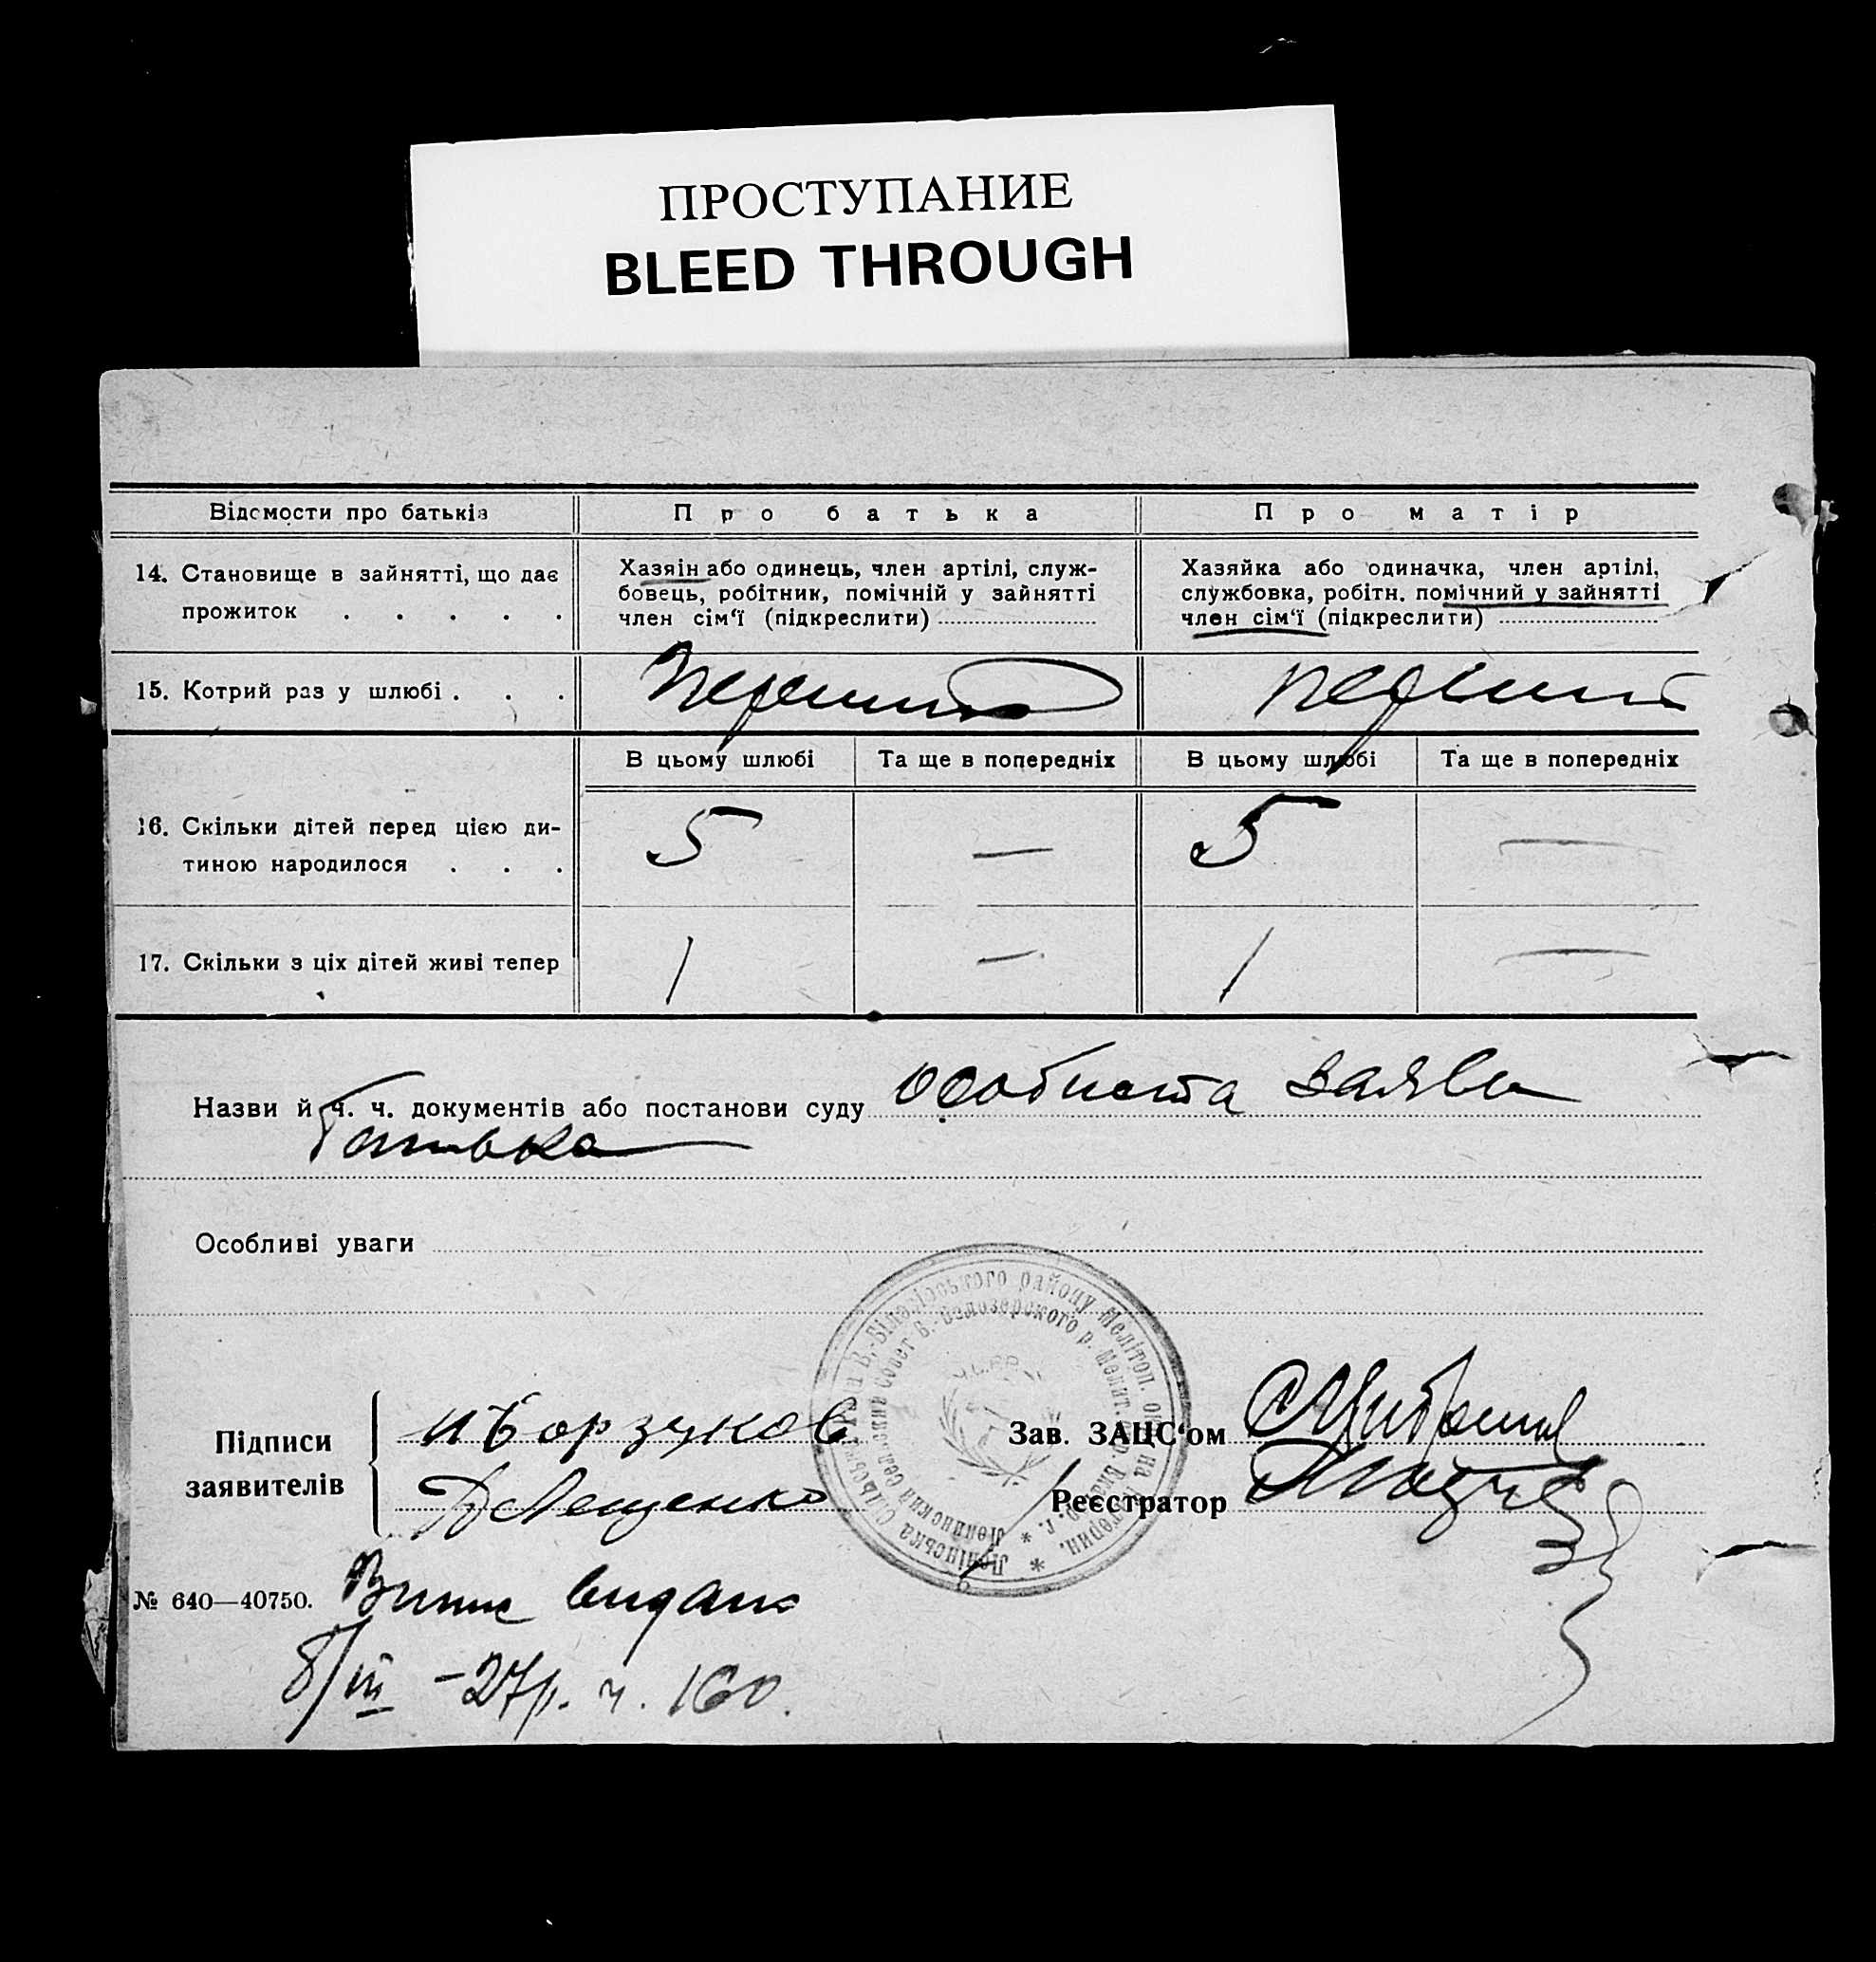 ПРОСТУПАНИЕ
BLEED THROUGH
Відомости про батьків
Про батька
Про матір
14. Становище в зайнятті, що дає
прожиток . . . . .
Хазяін або одинець, член артілі, служ-
бовець, робітник, помічній у зайнятті
член сім‘ї (підкреслити)
Хазяйка або одиначка, член артілі,
службовка, робітн. помічний у зайнятті
член сім‘ї (підкреслити)
15. Котрий раз у шлюбі . . .
В цьому шлюбі
Та ще в попередніх
В цьому шлюбі
Та ще в попередніх
16. Скільки дітей перед цією ди-
тиною народилося . . .
5 — 5 —
17. Скільки з ціх дітей живі тепер
1 — 1 —
Назви й ч. ч. документів або постанови суду особиста заява
батька
Особливі уваги
Підписи
заявителів
Лещенко
Зав. ЗАЦС‘ом
Реєстратор
№ 640—40750.
видано
8/III -27р. ч. 160.